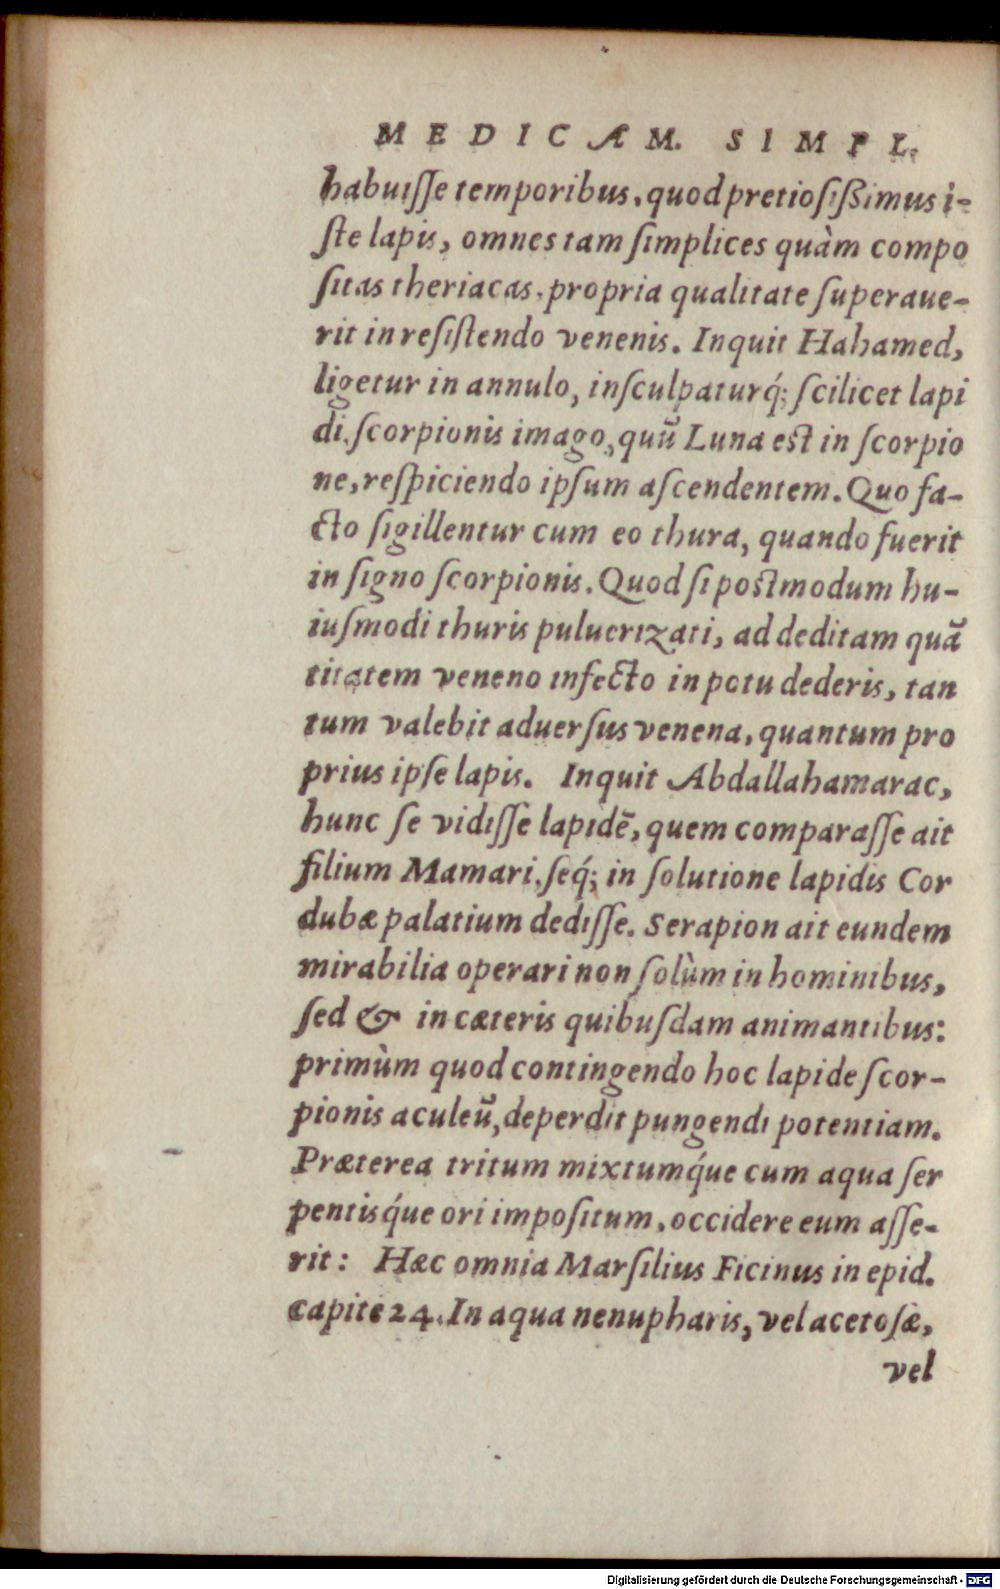 MEDICÆM. SIMPL.
habuisse temporibus, quod pretiosißimus i-
ste lapis, omnes tam simplices quàm compo
sitas theriacas, propria qualitate superaue-
rit in resistendo venenis. Inquit Hahamed,
ligetur in annulo, insculpaturq́; scilicet lapi
di, scorpionis imago, quũ Luna est in scorpio
ne, respiciendo ipsum ascendentem. Quo fa-
cto sigillentur cum eo thura, quando fuerit
in signo scorpionis. Quod si postmodum hu-
iusmodi thuris puluerizati, ad deditam quã
titatem veneno infecto in potu dederis, tan
tum valebit aduersus venena, quantum pro
prius ipse lapis. Inquit Abdallahamarac,
hunc se vidisse lapidẽ, quem comparasse ait
filium Mamari, seq́; in solutione lapidis Cor
dubæ palatium dedisse. Serapion ait eundem
mirabilia operari non solùm in hominibus,
sed & in cæteris quibusdam animantibus:
primùm quod contingendo hoc lapide scor-
pionis aculeũ, deperdit pungendi potentiam.
Præterea tritum mixtumq́ue cum aqua ser
pentisq́ue ori impositum, occidere eum asse-
rit: Hæc omnia Marsilius Ficinus in epid.
capite 24. In aqua nenupharis, vel acetosæ,
vel
Digitalisierung gefördert durch die Deutsche Forschungsgemeinschaft - DFG